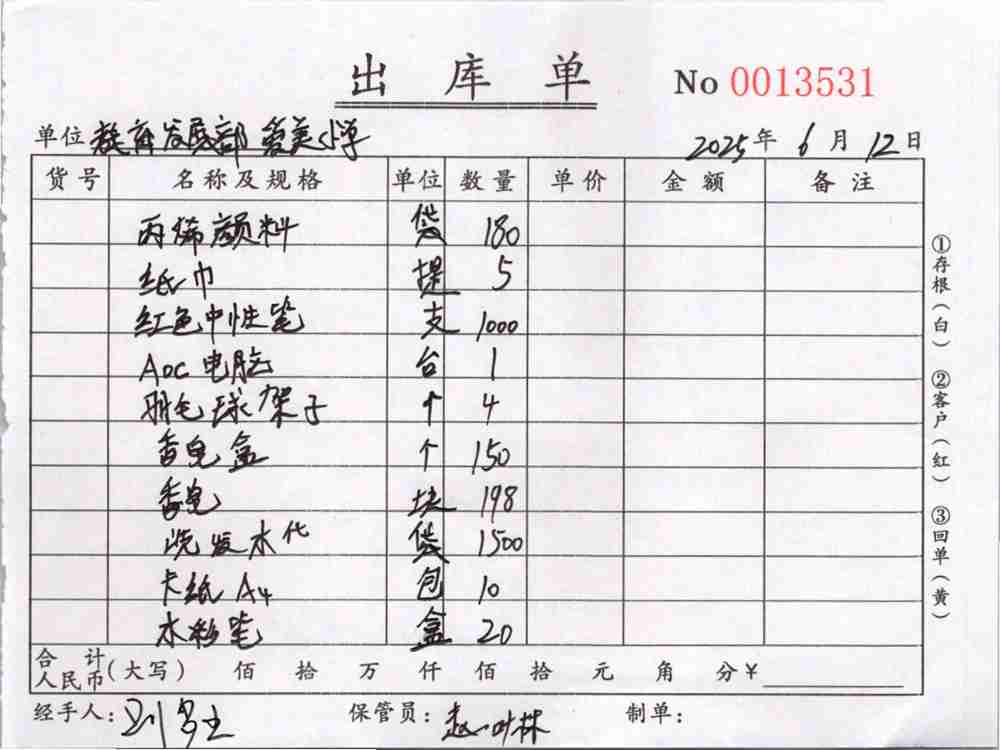 出库单 No 0013531
单位 教育发展部 美小学 2025年 6月 12日
货号 名称及规格 单位 数量 单价 金额 备注
丙烯颜料 袋 180
纸巾 提 5
红色中性笔 支 1000
AOC 电脑 台 1
羽毛球架子 个 4
香皂盒 个 150
香皂 块 198
洗发水代 袋 1500
卡纸 A4 包 10
水彩笔 盒 20
合计人民币(大写) 佰 拾 万 仟 佰 拾 元 角 分 ¥
经手人: 刘 保管员: 赵叶林 制单:
①存根(白) ②客户(红) ③回单(黄)